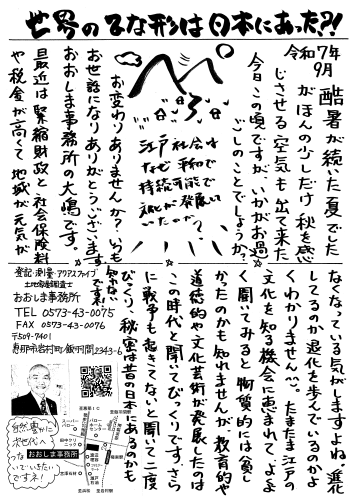 世界のひな形は日本にあった?!
令和7年
9月
酷暑が続いた夏でした
がほんの少しだけ秋を感
じさせる空気も出て来た
今日この頃ですが、いかがお過
ごしのことでしょうか?
江戸社会は
なぜ平和で
持続可能で
文化が発展して
いたのか?
お変わりありませんか?いつも
お世話になりありがとうございます
おおしま事務所の大嶋です。
最近は緊縮財政と社会保険料
や税金が高くて地域が元気が
なくなっている気がしますよね。進化
してるのか退化を歩んでいるのかよ
くわかりません💦。たまたま江戸の
文化を知る機会に恵まれて、よくよ
く聞いてみると物質的には貧し
かったのかも知れませんが、教育的や
道徳的や文化芸術が発展したのは
この時代と聞いてびっくりです。さら
に戦争も起きてないと聞いて二度
びっくり、秘密は昔の日本にあるのかも
知れないですネ!
登記・測量・アクアスファイブ
土地家屋調査士
おおしま事務所
TEL 0573-43-0075
FAX 0573-43-0076
〒509-7401
恵那市岩村町飯羽間2343-6
自然豊かな
未来を
次世代へ
つないでいきたい
ですネ!
おおしま事務所